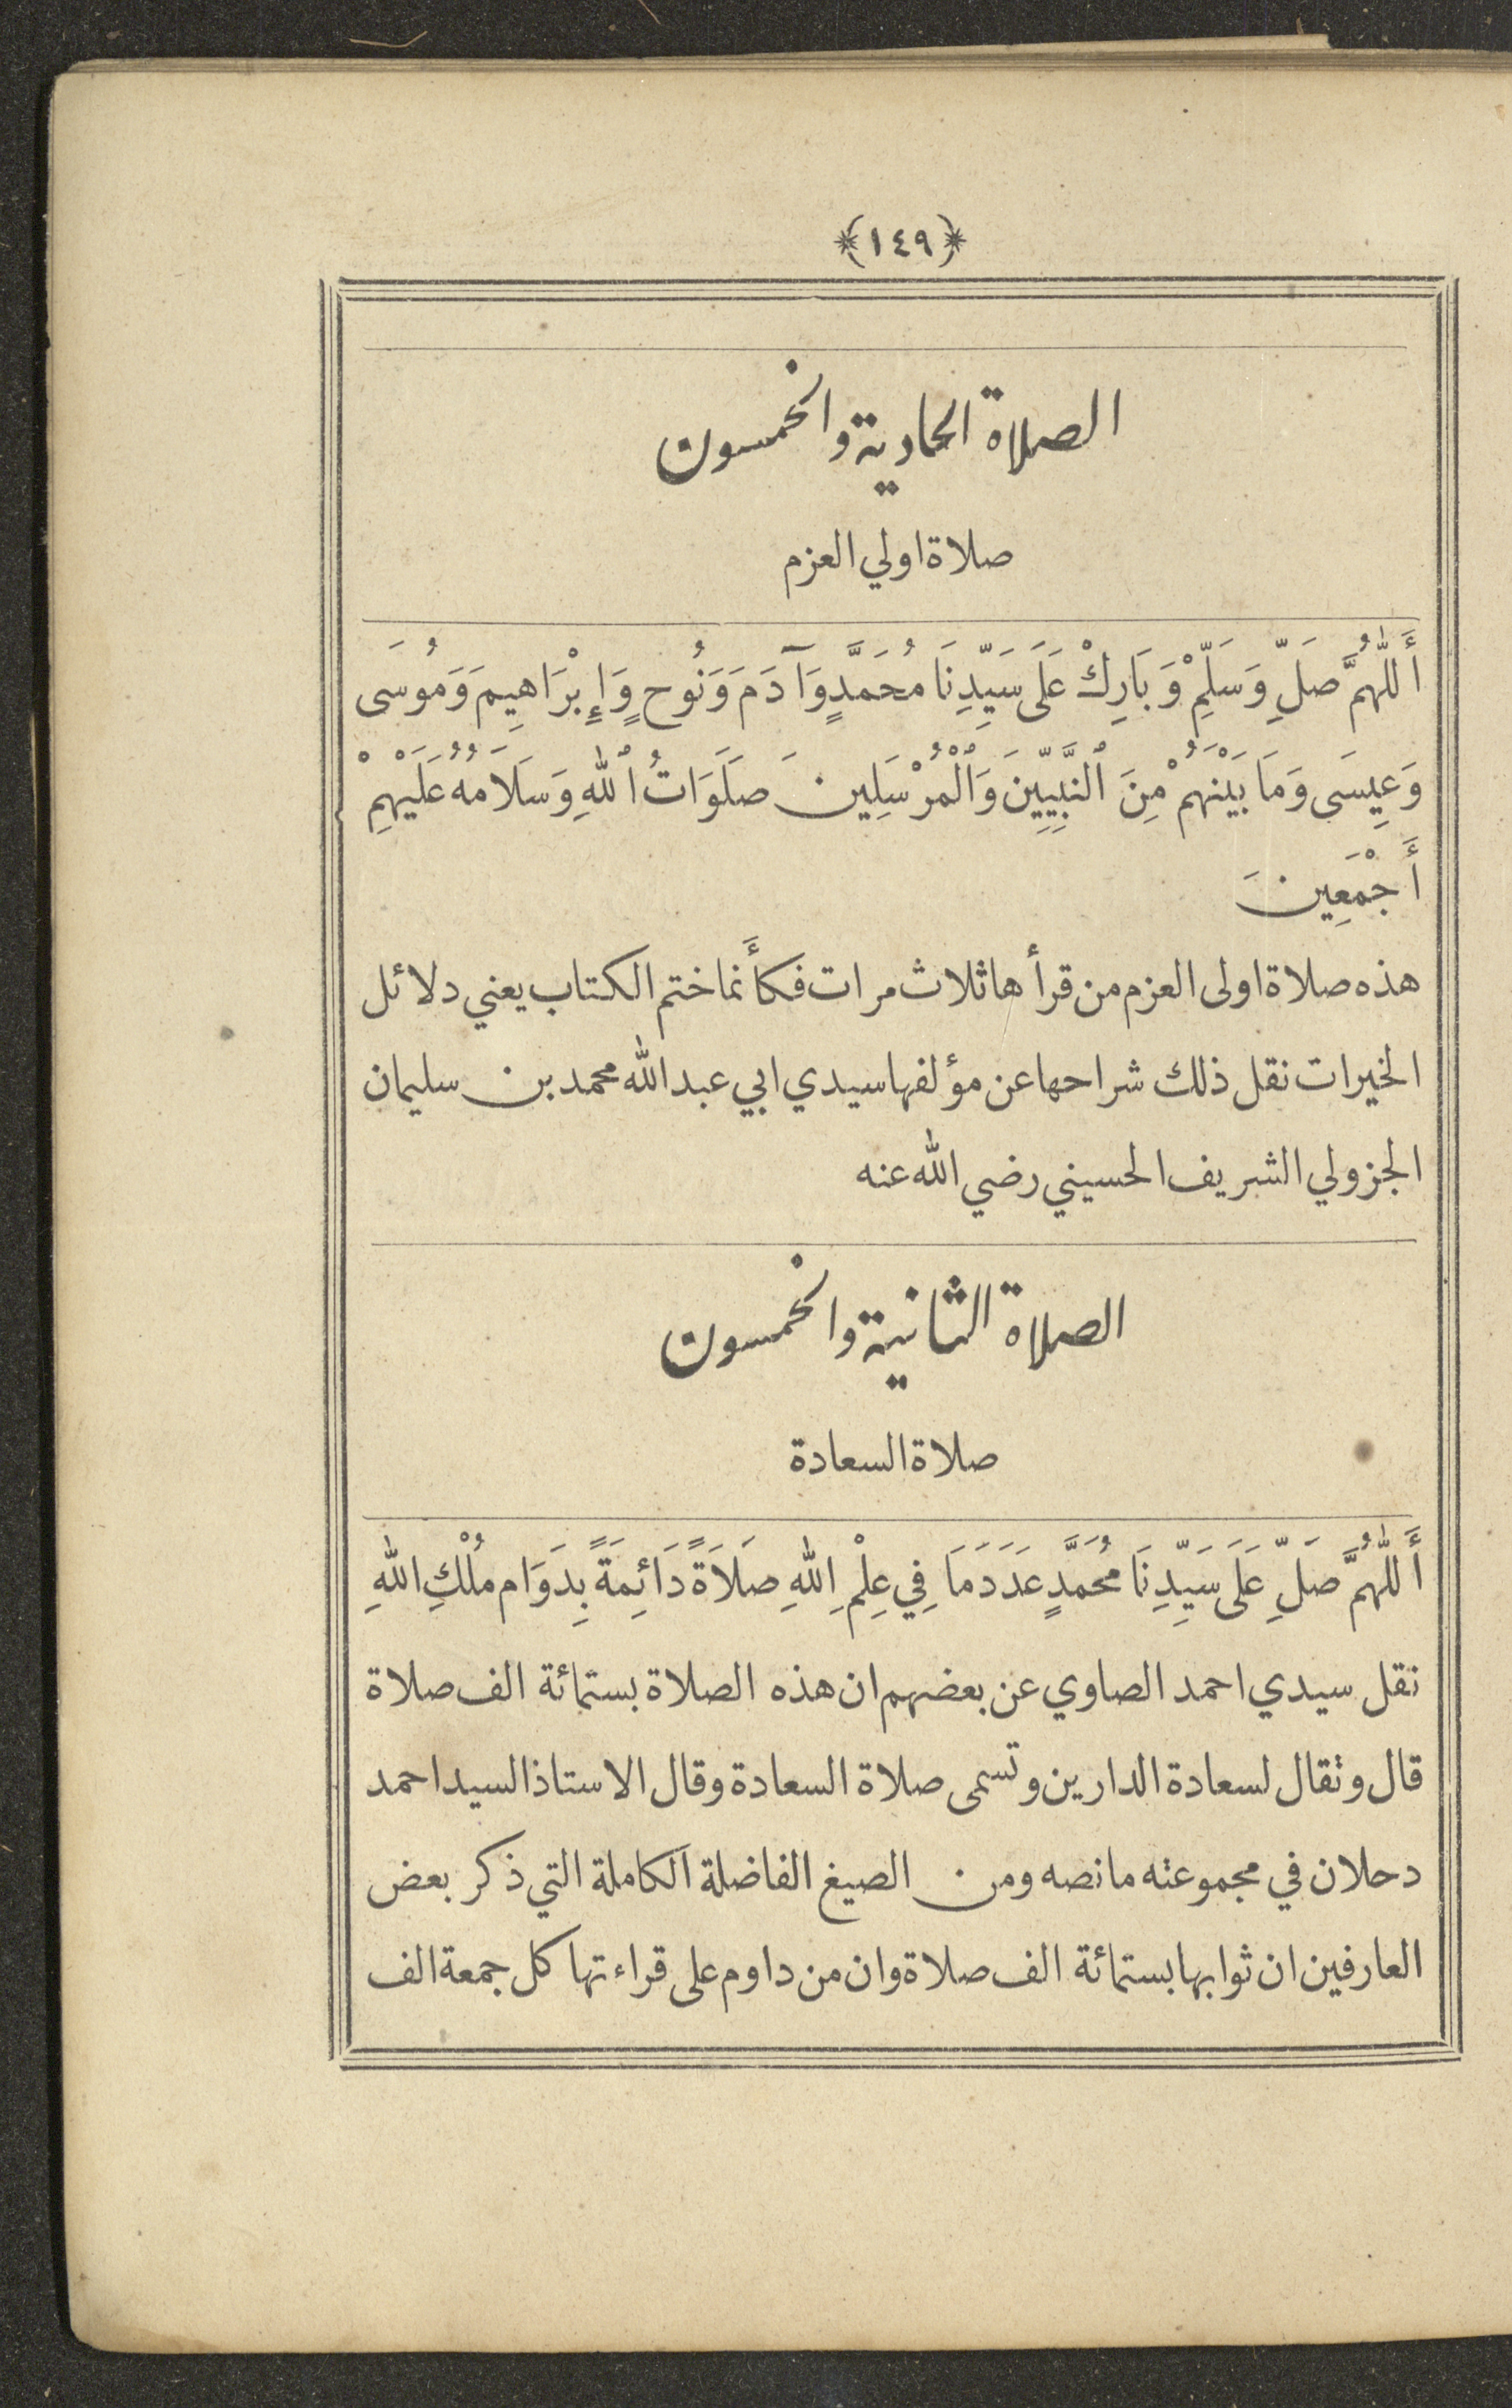 ﴿١٤٩﴾
الصلاة الحادية والخمسون
صلاة اولي العزم
أَللّٰهُمَّ صَلِّ وَسَلِّمْ وَبَارِكْ عَلَى سَيِّدِنَا مُحَمَّدٍ وَآدَمَ وَنُوحٍ وَإِبْرَاهِيمَ وَمُوسَى
وَعِيسَى وَمَا بَيْنَهُمْ مِنَ ٱلنَّبِيِّينَ وَٱلْمُرْسَلِينَ صَلَوَاتُ ٱللهِ وَسَلَامُهُ عَلَيْهِمْ
أَجْمَعِينَ
هذه صلاة اولى العزم من قرأها ثلاث مرات فكأَنما ختم الكتاب يعني دلائل
الخيرات نقل ذلك شراحها عن مؤلفها سيدي ابي عبد الله محمد بن سليمان
الجزولي الشريف الحسيني رضي الله عنه
الصلاة الثانية والخمسون
صلاة السعادة
أَللّٰهُمَّ صَلِّ عَلَى سَيِّدِنَا مُحَمَّدٍ عَدَدَ مَا فِي عِلْمِ اللهِ صَلَاَةً دَائِمَةً بِدَوَامِ مُلْكِ اللهِ
نقل سيدي احمد الصاوي عن بعضهم ان هذه الصلاة بستمائة الف صلاة
قال وتقال لسعادة الدارين وتسمى صلاة السعادة وقال الاستاذ السيد احمد
دحلان في مجموعته ما نصه ومن الصيغ الفاضلة الكاملة التي ذكر بعض
العارفين ان ثوابها بستمائة الف صلاة وان من داوم على قراءتها كل جمعة الف